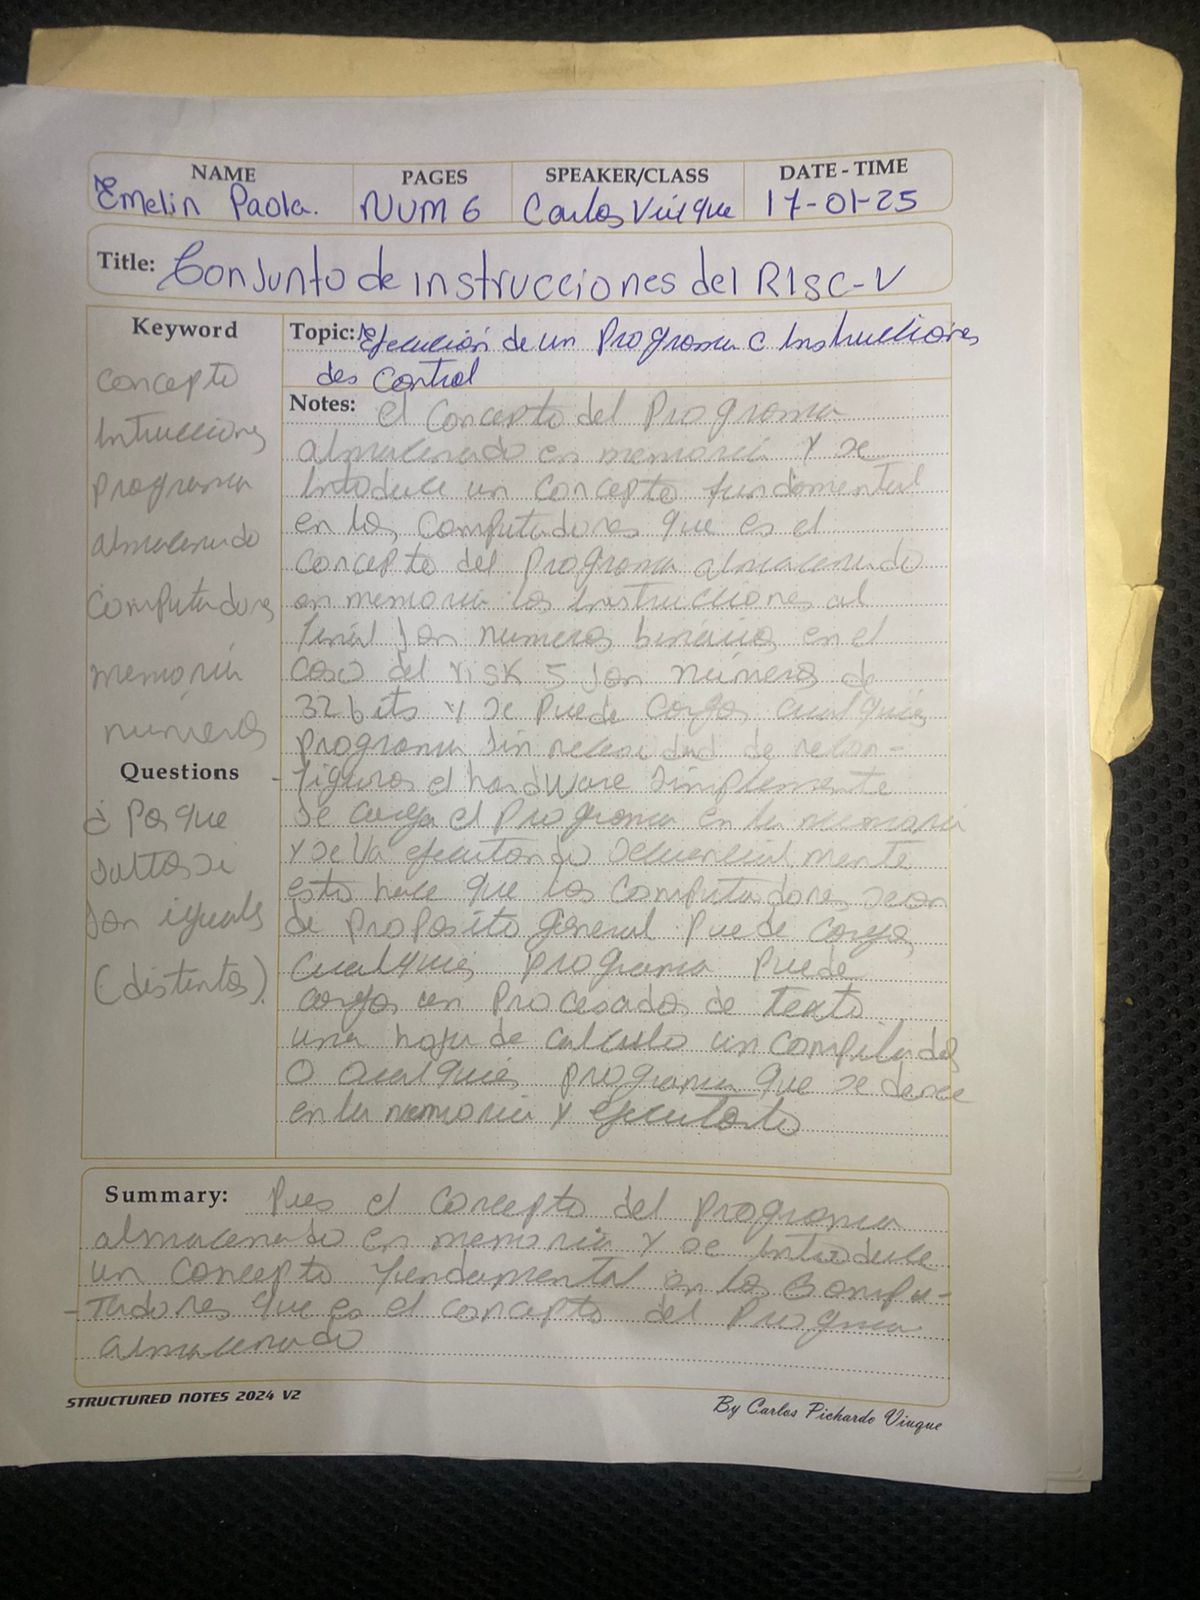 NAME PAGES SPEAKER/CLASS DATE - TIME
Emelin Paola. NUM 6 Carlos Viuque 17-01-25
Title: Conjunto de instrucciones del RISC-V
Keyword
concepto
Intrucciones
programa
almacenado
computadores
memoria
numeros
Questions
¿ Por que
saltos si
son iguals
(distintos).
Topic: Ejecución de un Programa e Instrucciones
des Control
Notes: el Concepto del Programa
almacenado en memoria y se
Introduce un concepto fundamental
en los computadores que es el
concepto del programa almacenado
en memoria los instrucciones al
final son numeros binarios en el
caso del risk 5 son números de
32 bits y se puede cargar cualquier
programa sin necesidad de recon-
-figurar el hardware simplemente
se carga el programa en la memoria
y se va ejecutando secuencialmente
esto hace que los computadores sean
de proposito general puede cargar
cualquier programa puede
cargar un procesador de texto
una hoja de calculo un compilador
o cualquier programa que se desee
en la memoria y ejecutarlo
Summary: Pues el concepto del programa
almacenado en memoria y se Introduce
un concepto fundamental en los compu-
-tadores que es el concepto del Programa
almacenado
STRUCTURED NOTES 2024 V2
By Carlos Pichardo Viuque